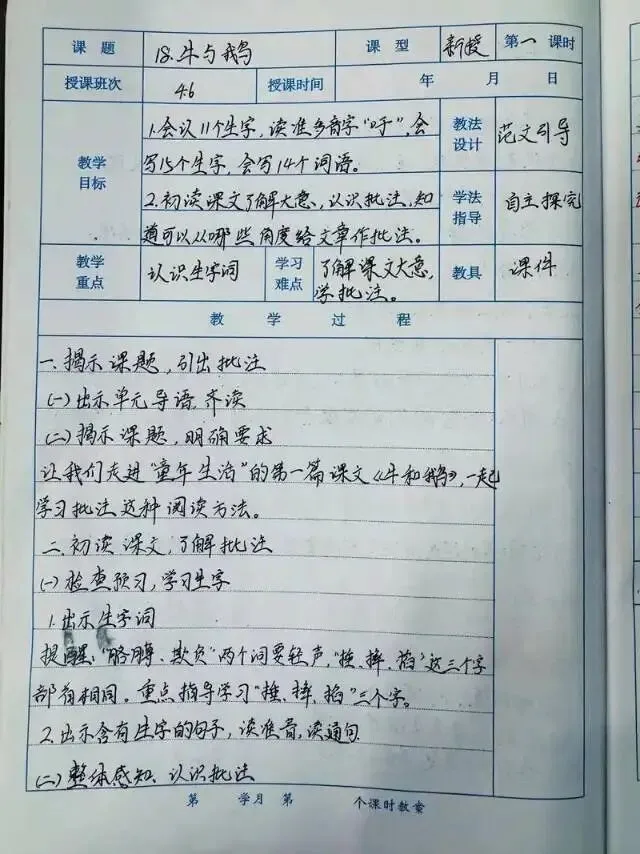 课 题 18.牛与鹅 课 型 新授 第一 课时
授课班次 4.6 授课时间 年 月 日
教学目标 1.会认11个生字,读准多音字“吁”,会
写15个生字,会写14个词语。
教法设计 范文引导
2.初读课文了解大意,认识批注,知
道可以从哪些角度给文章作批注。
学法指导 自主探究
教学重点 认识生字词 学习难点 了解课文大意,
学批注。
教具 课件
教 学 过 程
一.揭示课题,引出批注
(一)出示单元导语,齐读
(二)揭示课题,明确要求
让我们走进“童年生活”的第一篇课文《牛和鹅》,一起
学习批注这种阅读方法。
二.初读课文,了解批注
(一)检查预习,学习生字
1.出示生字词
提醒:“胳膊、欺负”两个词要轻声,“捶、摔、掐”这三个字
部首相同。重点指导学习“捶、摔、掐”三个字。
2.出示含有生字的句子,读准音,读通句
(二)整体感知、认识批注
第 学月 第 个课时教案